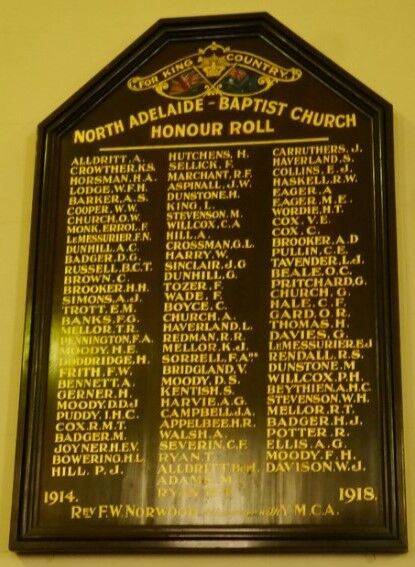 FOR KING & COUNTRY
NORTH ADELAIDE - BAPTIST CHURCH
HONOUR ROLL
ALLDRITT, A.
CROWTHER, K.S.
HORSMAN, H.A.
LODGE, W.F.H.
BARKER, A.S.
COOPER, W.W.
CHURCH, O.W.
MONK, ERROL, F.
LEMESSURIER, F.N.
DUNHILL, A.C.
BADGER, D.G.
RUSSELL, B.C.T.
BROWN, C.
BROOKER, H.H.
SIMONS, A.J.
TROTT, E.M.
BANKS, F.G.
MELLOR, T.R.
PENNINGTON, F.A.
MOODY, H.E.
DODDRIDGE, H.
FRITH, F.W.
BENNETT, A.
GERNER, H.
MOODY, D.D.J
PUDDY, J.H.C.
COX, R.M.T.
BADGER, M.
JOYNER, H.E.V.
BOWERING, H.L.
HILL, P.J.
HUTCHENS, H.
SELLICK, F.
MARCHANT, R.F.
ASPINALL, J.W.
DUNSTONE, H.
KING, L.
STEVENSON, M.
WILLCOX, C.A
HILL, A.
CROSSMAN, G.L.
HARRY, W.
SINCLAIR, J.G
DUNHILL, G.
TOZER, F.
WADE, F.
BOYCE, C.
CHURCH, A.
HAVERLAND, L.
REDMAN, R.R.
MELLOR, K.J.
SORRELL, F.A.
BRIDGLAND, V.
MOODY, D.S.
KENTISH, S.
HARVIE, A.G.
CAMPBELL, J.A.
APPELBEE, H.R.
WALSH, A.
SEVERIN, C.F.
RYAN, T.
ALLDRITT,
ADAMS, M.
RYAN,
CARRUTHERS, J.
HAVERLAND, S.
COLLINS, E.J.
HASKELL, R.W.
EAGER, A
EAGER, M.E.
WORDIE, H.T.
COX, V.E.
COX, C.
BROOKER, A.D
PULLIN, C.E.
TAVENDER, L.J.
BEALE, O.C.
PRITCHARD, G.
CHURCH, G.
GALE, C.F.
GARD, O.R.
THOMAS, H.
DAVIES, G.
LEMESSURIER, E.J
RENDALL, R.S.
DUNSTONE, M
WILLCOX, P.H.
BEYTHIEN, A.H.C.
STEVENSON, W.H.
MELLOR, R.T.
BADGER, H.J.
POTTER, R.
ELLIS, A.G.
MOODY, F.H.
DAVISON, W.J.
1914. 1918.
REV F.W. NORWOOD with Y.M.C.A.